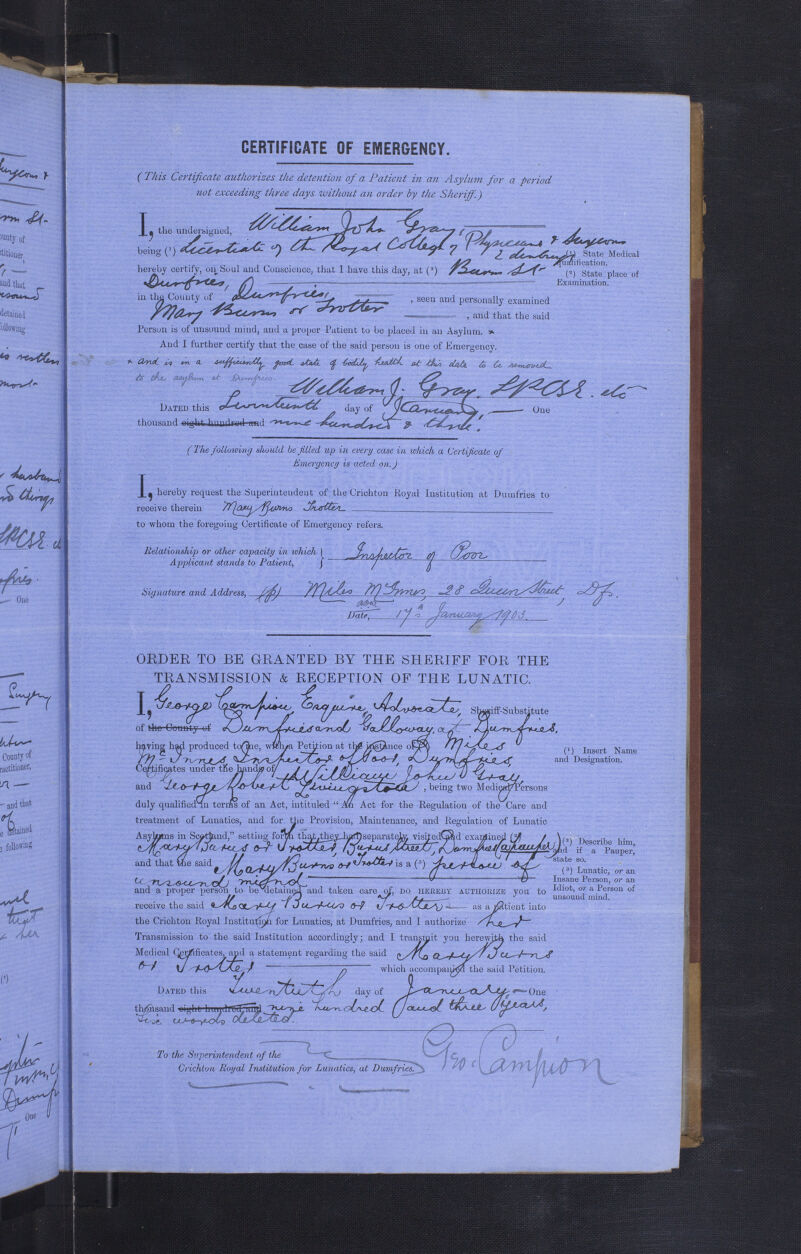 CERTIFICATE OF EMERGENCY.
(This Certificate authorizes the detention of a Patient in an Asylum for a period
not exceeding three days without an order by the Sheriff.)
I, the undersigned, William John Gray,
being (¹) Licentiate of the Royal College of Physicians & Surgeons
Edinburgh
(¹) State Medical
Qualification.
hereby certify, on Soul and Conscience, that I have this day, at (²) Burns St
(²) State place of
Examination.
Dumfries,
in the County of Dumfries, , seen and personally examined
Mary Burns or Trotter , and that the said
Person is of unsound mind, and a proper Patient to be placed in an Asylum. ×
And I further certify that the case of the said person is one of Emergency.
× and is in a sufficiently good state of bodily health at this date to be removed
to the asylum at Dumfries.
William J. Gray. LRCSE. etc
DATED this Seventeenth day of January, One
thousand eight hundred and nine hundred & three.
(The following should be filled up in every case in which a Certificate of
Emergency is acted on.)
I, hereby request the Superintendent of the Crichton Royal Institution at Dumfries to
receive therein Mary Burns Trotter
to whom the foregoing Certificate of Emergency refers.
Relationship or other capacity in which
Applicant stands to Patient, } Inspector of Poor
Signature and Address, (p) Miles McInnes, 28 Queen Street, Dfs.
Date, 17th January 1903.
ORDER TO BE GRANTED BY THE SHERIFF FOR THE
TRANSMISSION & RECEPTION OF THE LUNATIC.
I, George Campion Esquire, Advocate, Sheriff-Substitute
of the County of Dumfries and Galloway, at Dumfries,
having had produced to me, with a Petition at the instance of (¹) Miles
(¹) Insert Name
and Designation.
McInnes, Inspector of Poor, Dumfries
Certificates under the hands of William John Gray
and George Robert Livingstone, being two Medical Persons
duly qualified in terms of an Act, intituled "An Act for the Regulation of the Care and
treatment of Lunatics, and for the Provision, Maintenance, and Regulation of Lunatic
Asylums in Scotland," setting forth that they had separately visited and examined (²)
Mary Burns or Trotter, Burns Street, Dumfries (a pauper)
(²) Describe him,
and if a Pauper,
state so.
and that the said Mary Burns or Trotter is a (³) person of
(³) Lunatic, or an
Insane Person, or an
Idiot, or a Person of
unsound mind.
unsound mind
and a proper person to be detained and taken care of, DO HEREBY AUTHORIZE you to
receive the said Mary Burns or Trotter as a Patient into
the Crichton Royal Institution for Lunatics, at Dumfries, and I authorize her
Transmission to the said Institution accordingly; and I transmit you herewith the said
Medical Certificates, and a statement regarding the said Mary Burns
or Trotter which accompanied the said Petition.
DATED this Twentieth day of January One
thousand eight hundred and nine hundred and three years,
Six words deleted.
Geo. Campion
To the Superintendent of the
Crichton Royal Institution for Lunatics, at Dumfries.